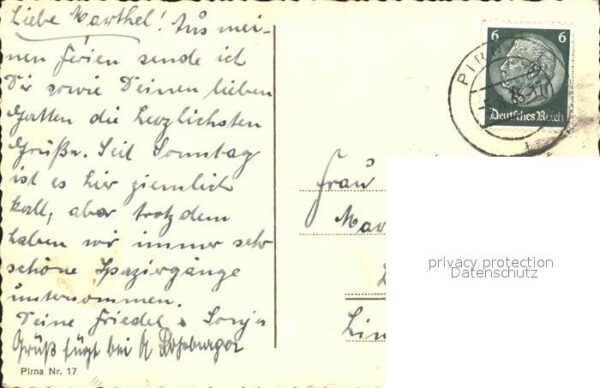 Liebe Marthel! Aus mei-
nen Ferien sende ich
Dir sowie Deinen lieben
Gatten die herzlichsten
Grüße. Seit Sonntag
ist es hier ziemlich
kalt, aber trotzdem
haben wir immer sehr
schöne Spaziergänge
unternommen.
Deine Friedel u. Sonja
Grüß
bei
Pirna Nr. 17
PIR
6 6
Deutsches Reich
Frau
Mar
Lin
privacy protection
Datenschutz